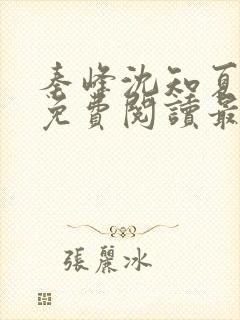 秦峰沈知夏
免費閱讀最
張麗冰